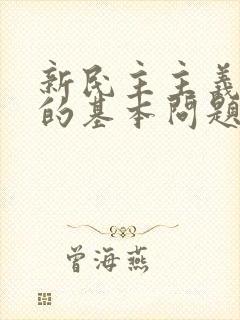 新民主主義
的基本問題
曾海燕